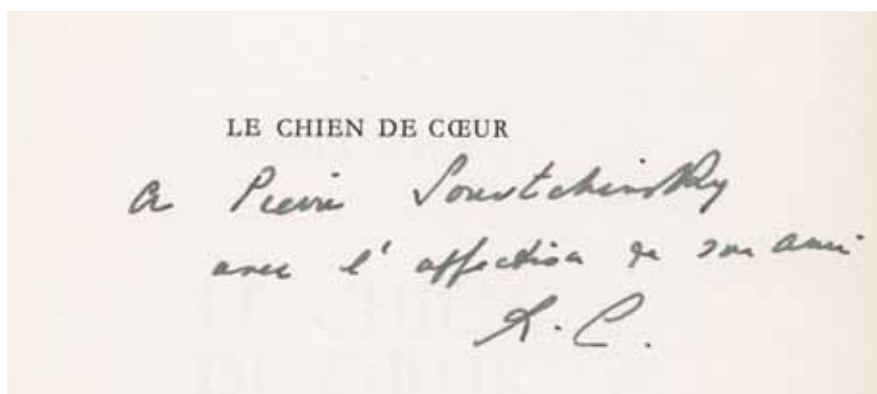 LE CHIEN DE CŒUR
a Pierre Souvtchinsky
avec l'affection de son ami
R. C.